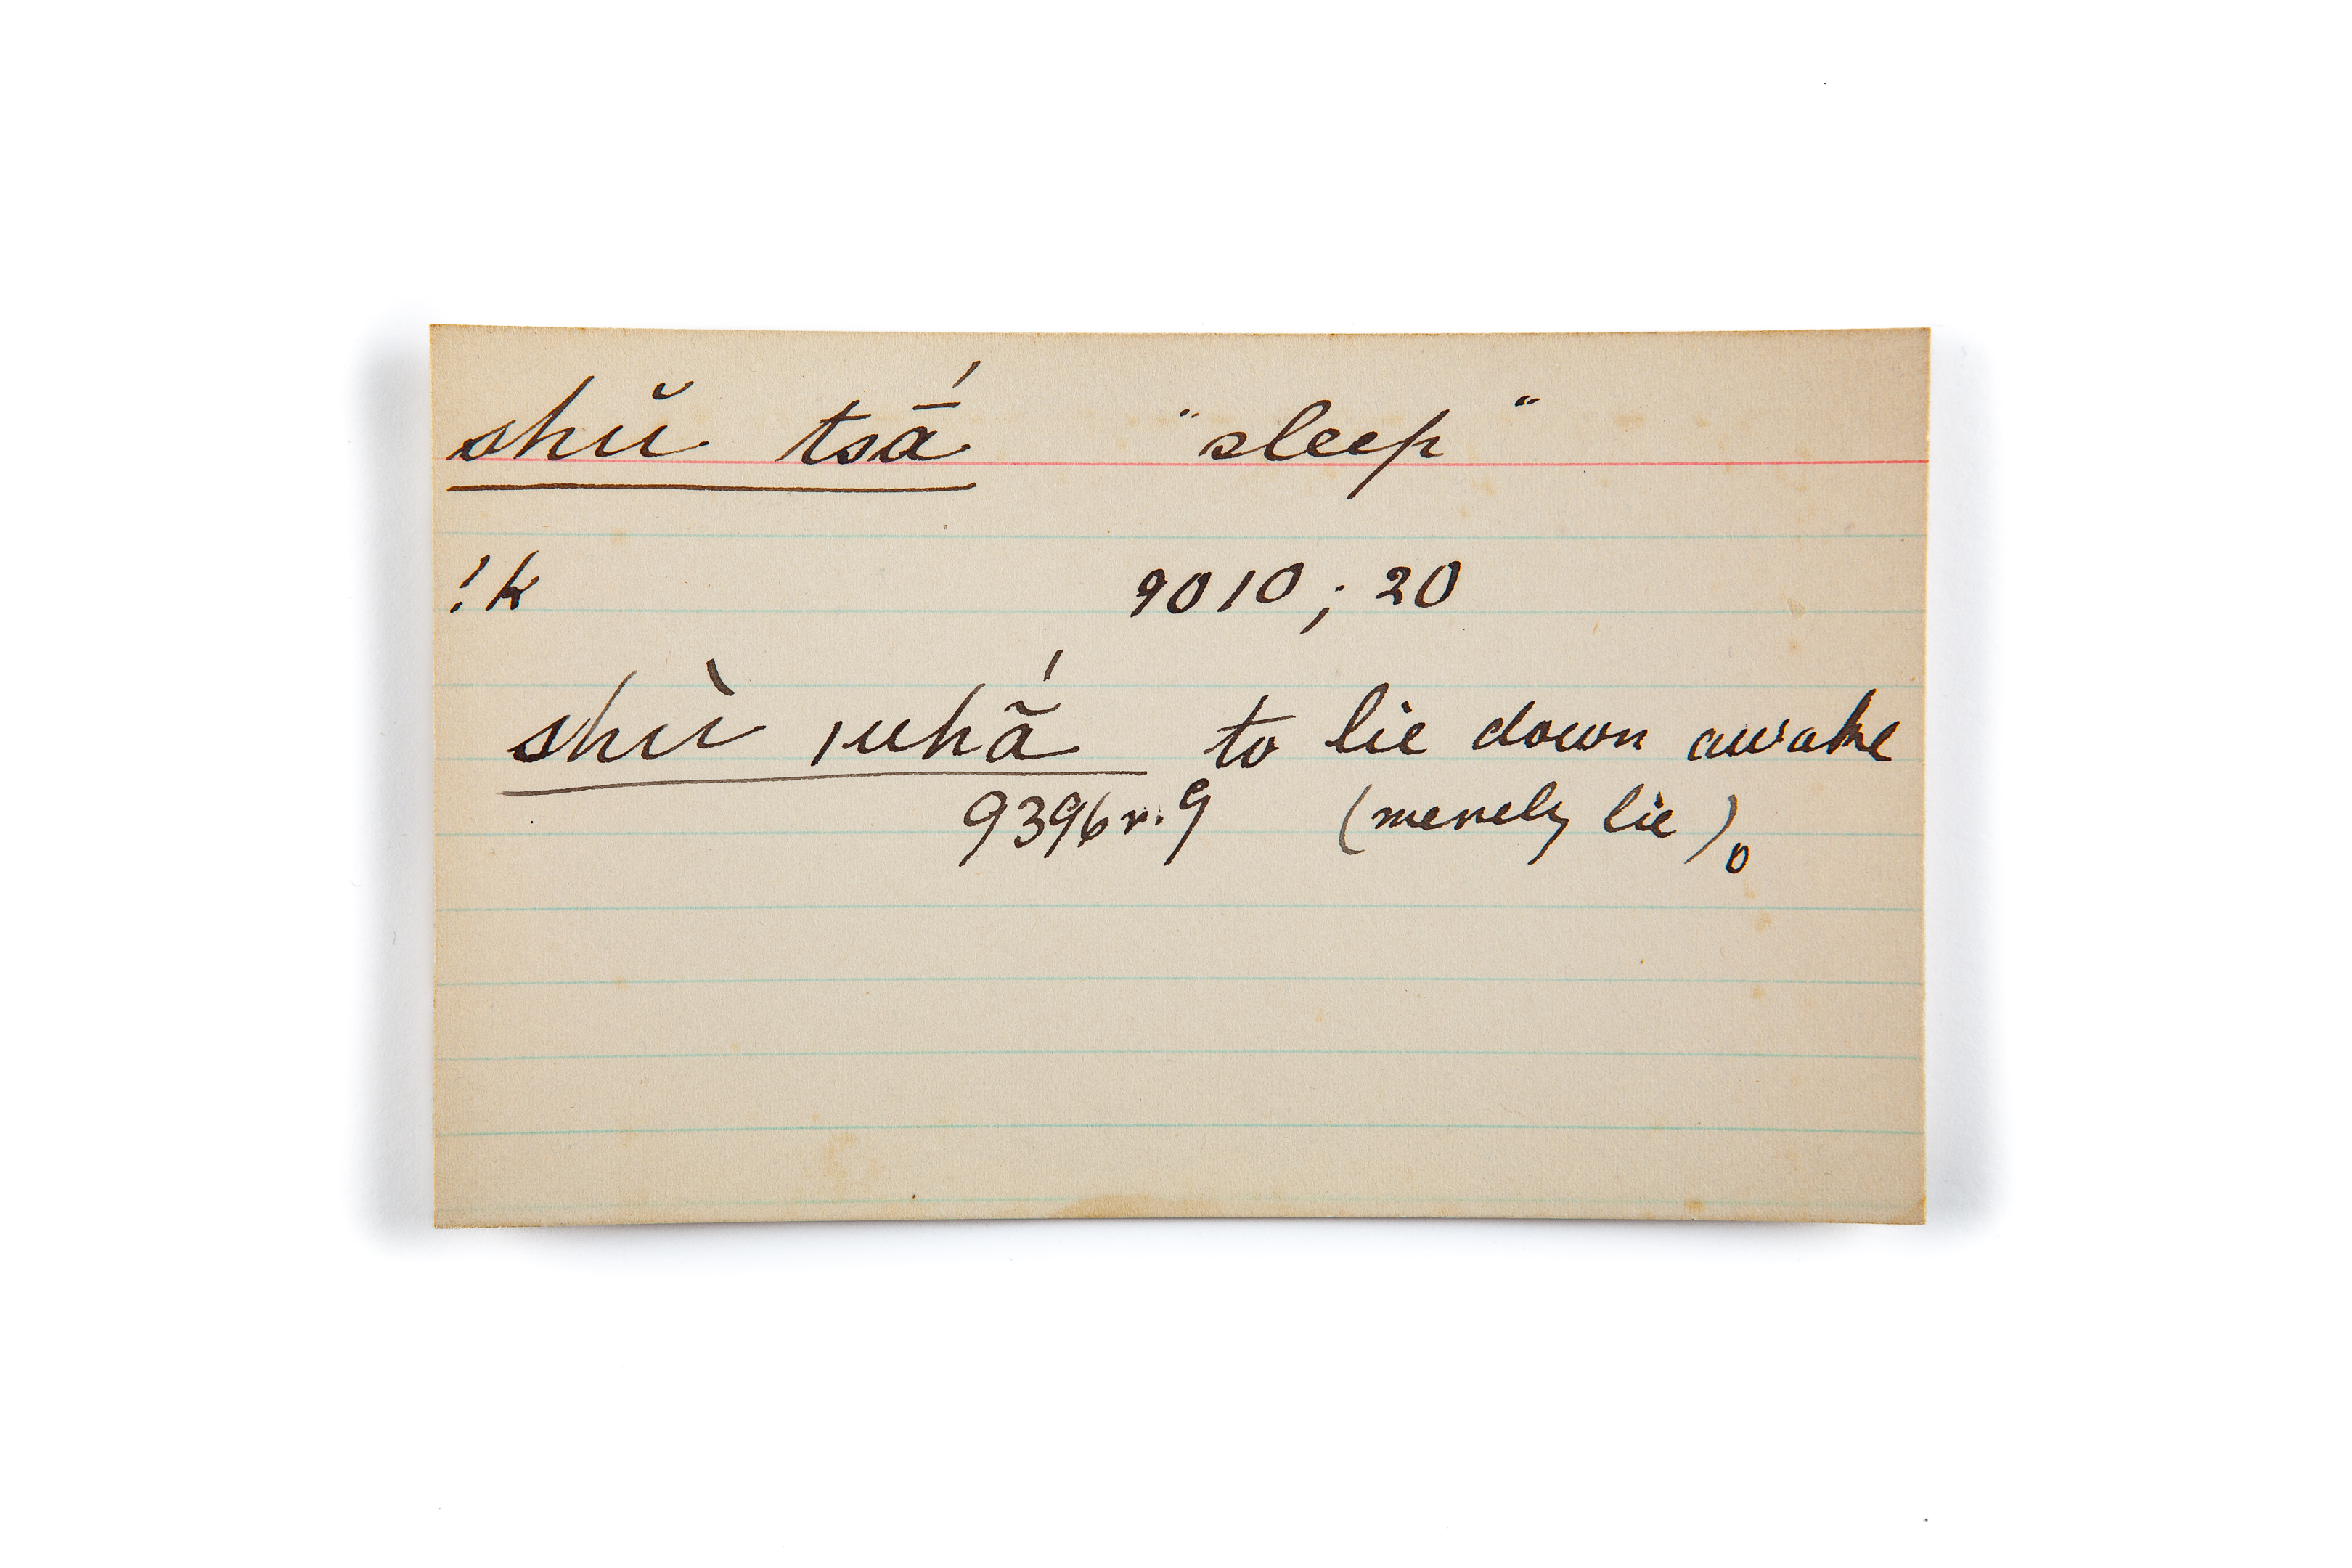 shŭ tsā́ "sleep"
!k 9010; 20
shǔ ıuhã́ to lie down awake
9396 r. 9 (merely lie)o